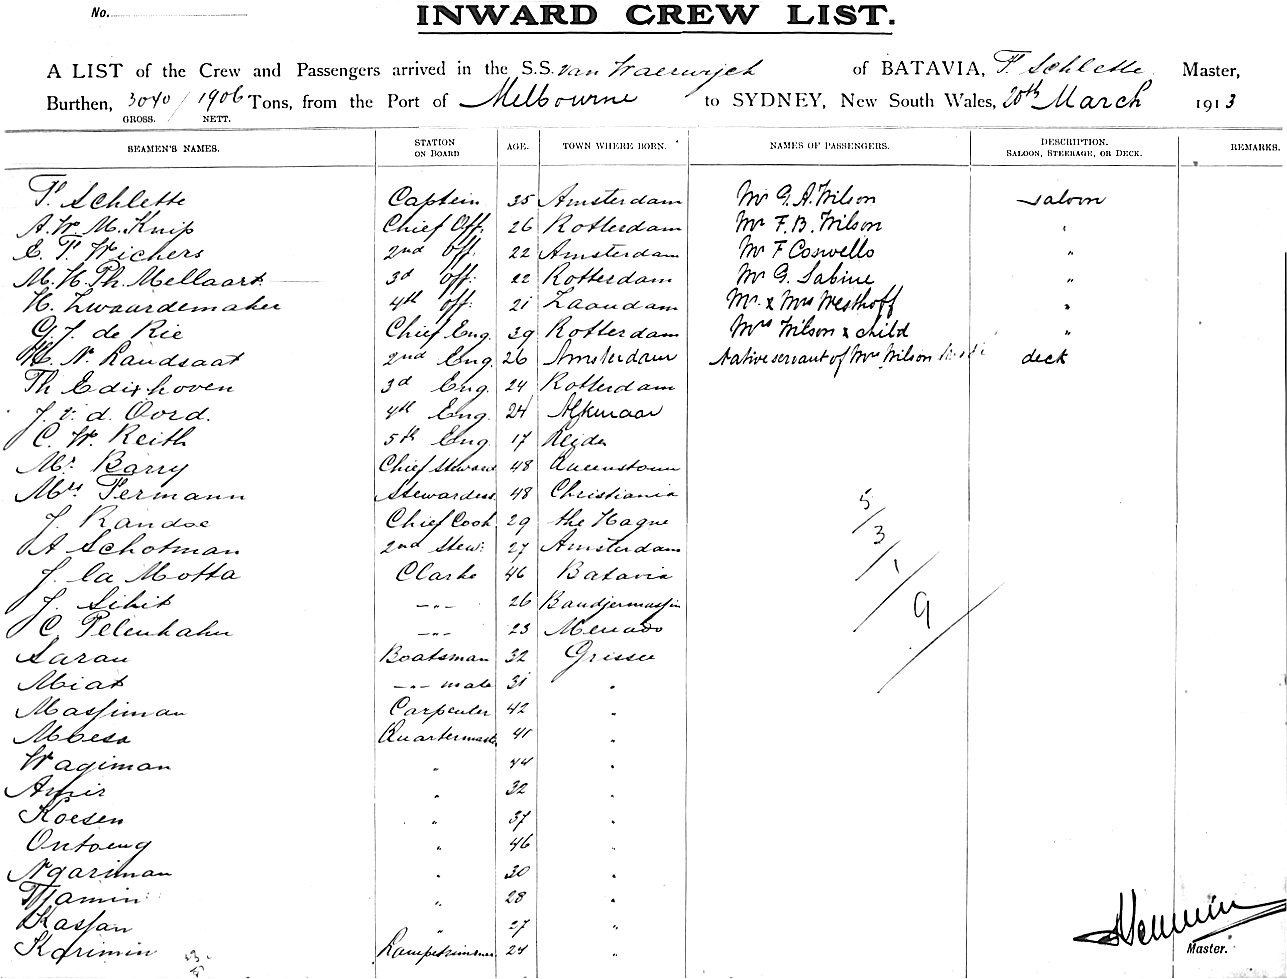 No.
INWARD CREW LIST.
A LIST of the Crew and Passengers arrived in the S.S. van Waerwijck of BATAVIA, F. Schlette Master,
Burthen, 3040 / 1906 Tons, from the Port of Melbourne to SYDNEY, New South Wales, 20th March 1913
GROSS. NETT.
SEAMEN'S NAMES. STATION ON BOARD AGE. TOWN WHERE BORN. NAMES OF PASSENGERS. DESCRIPTION. SALOON, STEERAGE, OR DECK. REMARKS.
F. Schlette Captein 35 Amsterdam Mr G. A. Wilson saloon
A. W. M. Knip Chief Off. 26 Rotterdam Mr F. B. Wilson "
E. F. Wichers 2nd Off. 22 Amsterdam Mr F Coswello "
M. H. Ph. Mellaart 3d Off. 22 Rotterdam Mr G. Sabine "
H. Zwaardemaker 4th Off. 21 Zaandam Mr. & Mrs Westhoff "
G. J. de Rie Chief Eng. 39 Rotterdam Mrs Wilson & child "
H. N. Randsaat 2nd Eng. 26 Amsterdam Native servant of Mrs Wilson deck
Th Edixhoven 3d Eng. 24 Rotterdam
J. v. d. Oord. 4th Eng. 24 Alkmaar
C. W. Reith 5th Eng. 17
Mr. Barry Chief Steward 48 Queenstown
Mrs Permann Stewardess 48 Christiania
J. Randoe Chief Cook 29 the Hague
A Schotman 2nd Stew. 27 Amsterdam
J. la Motta Clarke 46 Batavia
J. Sihit -"- 26 Bandjermassin
C. Pelenkahu -"- 23 Menado
Saran Boatsman 32 Grissee
Miat -"- mate 31 "
Massiman Carpenter 42 "
Moesa Quartermaster 41 "
Wagiman " 44 "
Amir " 32 "
Koesen " 37 "
Ontoeng " 46 "
Ngariman " 30 "
Tjamin " 28 "
Kassan " 27 "
Karimin Lampetrimmer 24 "
5/3/1/9
Master.